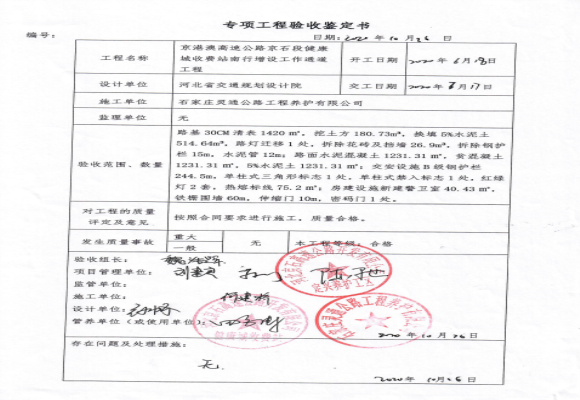 专项工程验收鉴定书
编号：
日期：2020年10月26日
工程名称
京港澳高速公路京石段健康城收费站南行增设工作通道工程
开工日期
2020年6月18日
设计单位
河北省交通规划设计院
交工日期
2020年8月17日
施工单位
石家庄灵通公路工程养护有限公司
监理单位
无
验收范围、数量
路基30CM清表1420㎡，挖土方180.73m³，换填5%水泥土
514.64m³，路灯迁移1处，拆除花砖及挡墙26.9m³，拆除钢护
栏15m，水泥管12m；路面水泥混凝土1231.31㎡，贫混凝土
1231.31㎡，5%水泥土1231.31㎡；交安设施B级钢护栏
244.5m，单柱式三角形标志1处，单柱式禁入标志1处，红绿
灯2套，热熔标线75.2㎡；房建设施新建警卫室40.43㎡，
铁栅围墙60m，伸缩门10m，密码门1处。
对工程的质量
评定及意见
按照合同要求进行施工，质量合格。
发生质量事故
重大
一般
无
本工程等级：合格
验收组长：
项目管理单位：
监管单位：
施工单位：
设计单位：
管养单位（或使用单位）：
2020年10月26日
存在问题及处理措施：
无
2020年10月26日